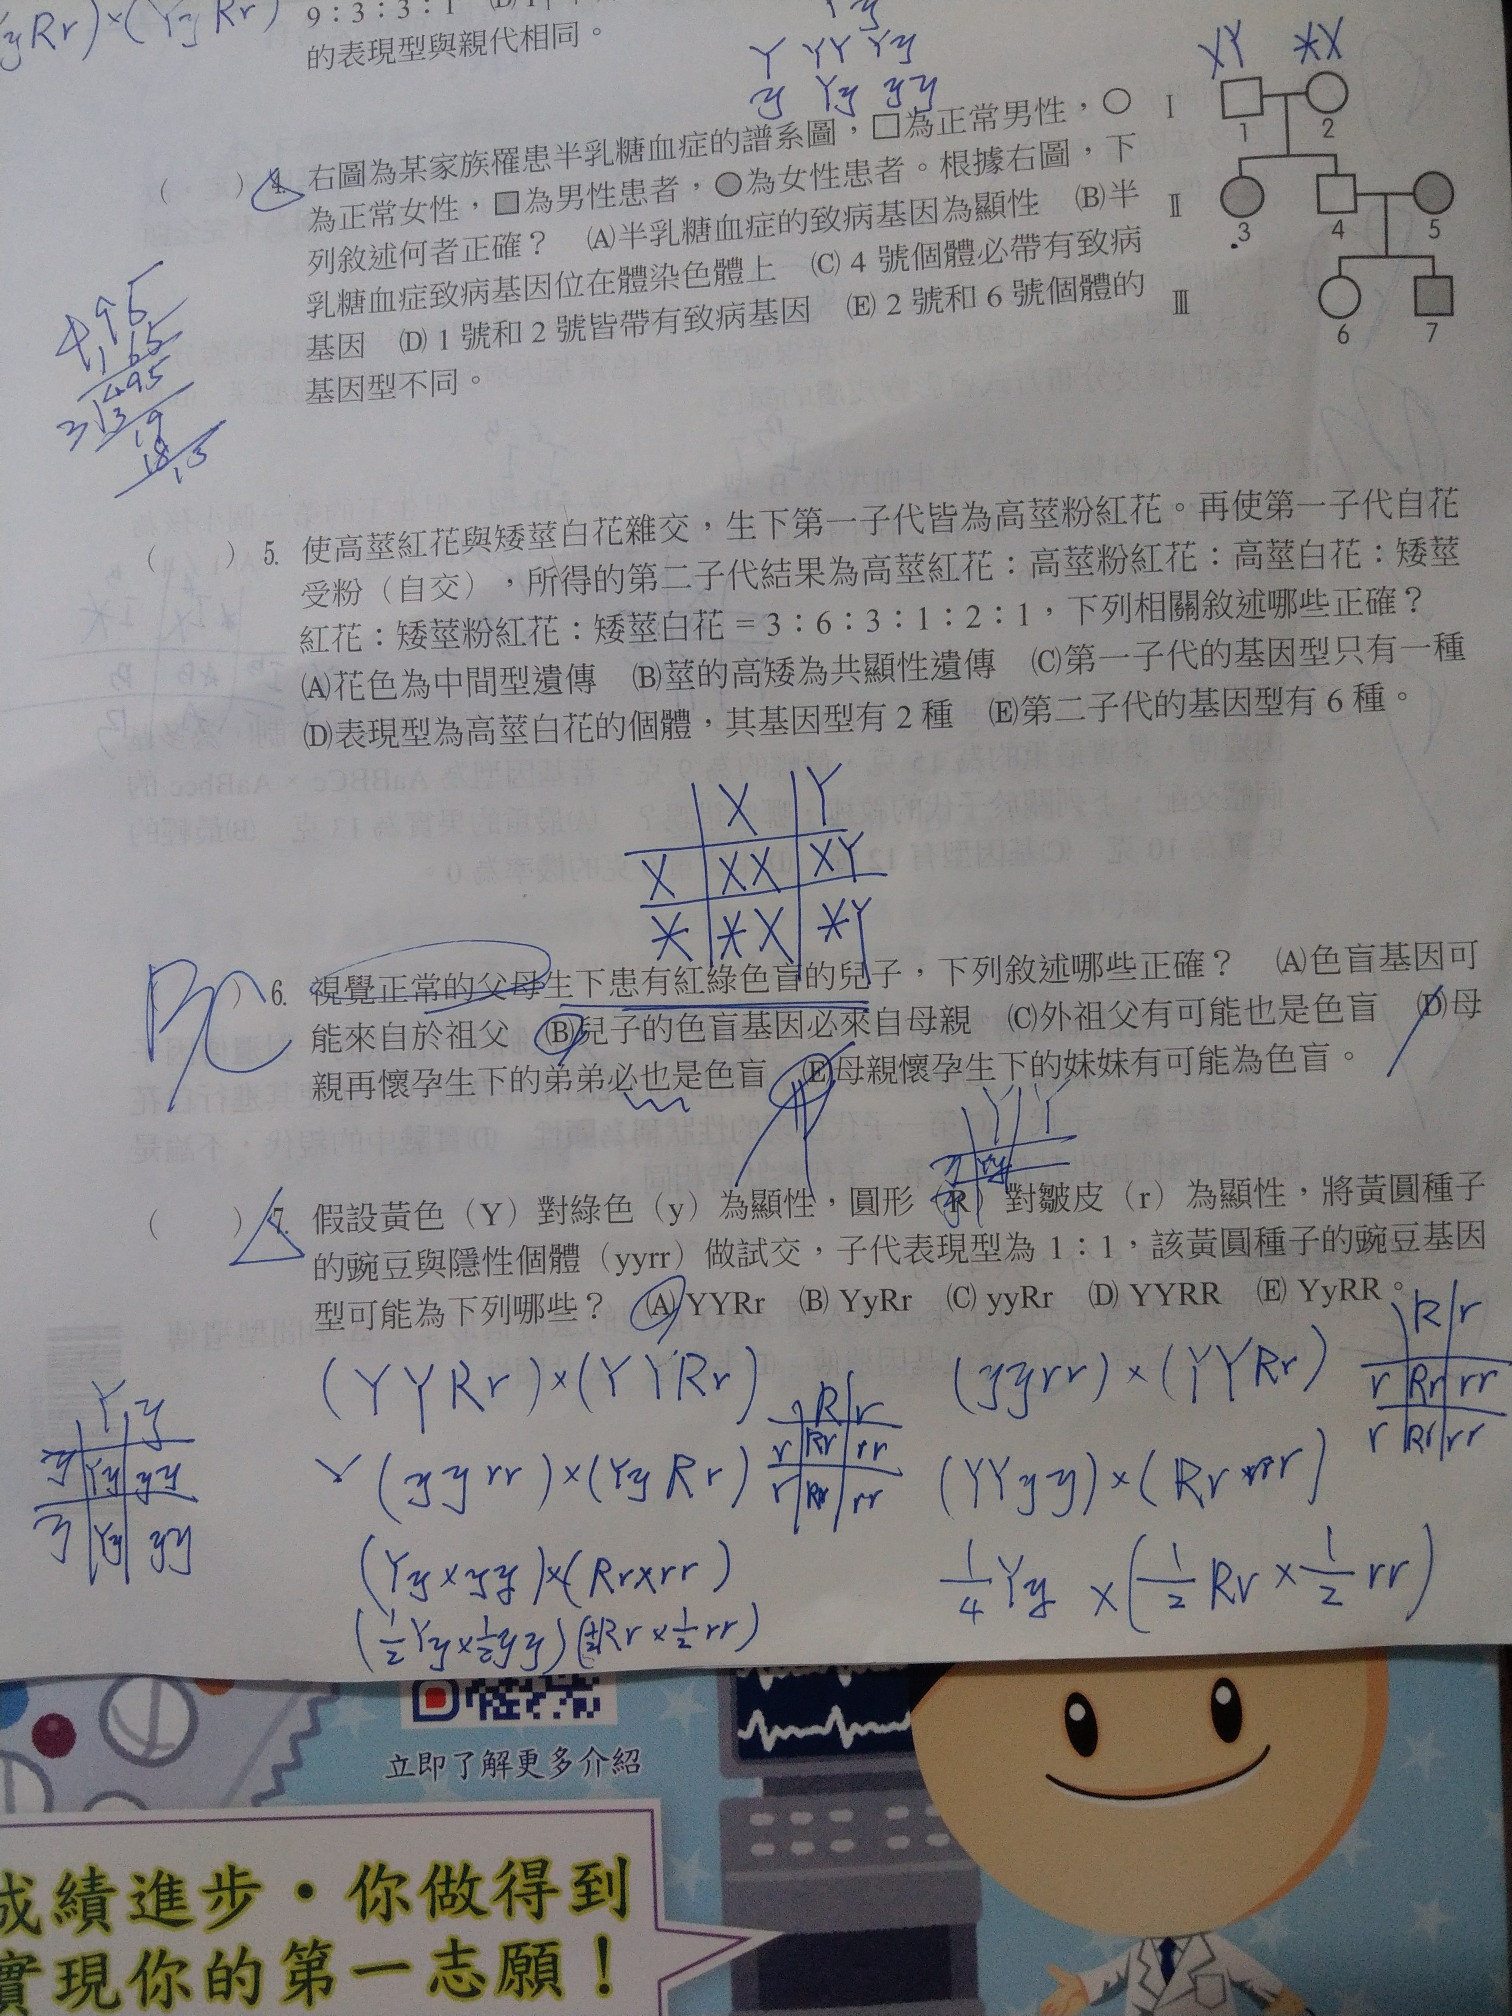 yRr)×(YyRr)
9：3：3：1
的表現型與親代相同。
Y YY Yy
y Yy yy
XY
XX
（ ）4. 右圖為某家族罹患半乳糖血症的譜系圖，□為正常男性，○
為正常女性，■為男性患者，●為女性患者。根據右圖，下
列敘述何者正確？ (A)半乳糖血症的致病基因為顯性 (B)半
乳糖血症致病基因位在體染色體上 (C) 4 號個體必帶有致病
基因 (D) 1 號和 2 號皆帶有致病基因 (E) 2 號和 6 號個體的
基因型不同。
I
1 2
II
3 4 5
III
6 7
（ ）5. 使高莖紅花與矮莖白花雜交，生下第一子代皆為高莖粉紅花。再使第一子代自花
受粉（自交），所得的第二子代結果為高莖紅花：高莖粉紅花：高莖白花：矮莖
紅花：矮莖粉紅花：矮莖白花 = 3：6：3：1：2：1，下列相關敘述哪些正確？
(A)花色為中間型遺傳 (B)莖的高矮為共顯性遺傳 (C)第一子代的基因型只有一種
(D)表現型為高莖白花的個體，其基因型有 2 種 (E)第二子代的基因型有 6 種。
X Y
X XX XY
X XX XY
BC
）6. 視覺正常的父母生下患有紅綠色盲的兒子，下列敘述哪些正確？ (A)色盲基因可
能來自於祖父 (B)兒子的色盲基因必來自母親 (C)外祖父有可能也是色盲 (D)母
親再懷孕生下的弟弟必也是色盲 (E)母親懷孕生下的妹妹有可能為色盲。
Y Y
（ ）7. 假設黃色（Y）對綠色（y）為顯性，圓形（R）對皺皮（r）為顯性，將黃圓種子
的豌豆與隱性個體（yyrr）做試交，子代表現型為 1：1，該黃圓種子的豌豆基因
型可能為下列哪些？ (A) YYRr (B) YyRr (C) yyRr (D) YYRR (E) YyRR。
(YYRr)×(YYRr)
(yyrr)×(YYRr)
R r
r Rr rr
r Rr rr
(yyrr)×(YyRr)
R r
r Rr rr
r Rr rr
(YYyy)×(Rr rr)
Y y
y Yy yy
y Yy yy
(Yy×yy)×(Rr×rr)
1/4 Yy ×(1/2 Rr × 1/2 rr)
(1/2 Yy×1/2 yy)(1/2 Rr×1/2 rr)
立即了解更多介紹
成績進步・你做得到
實現你的第一志願！